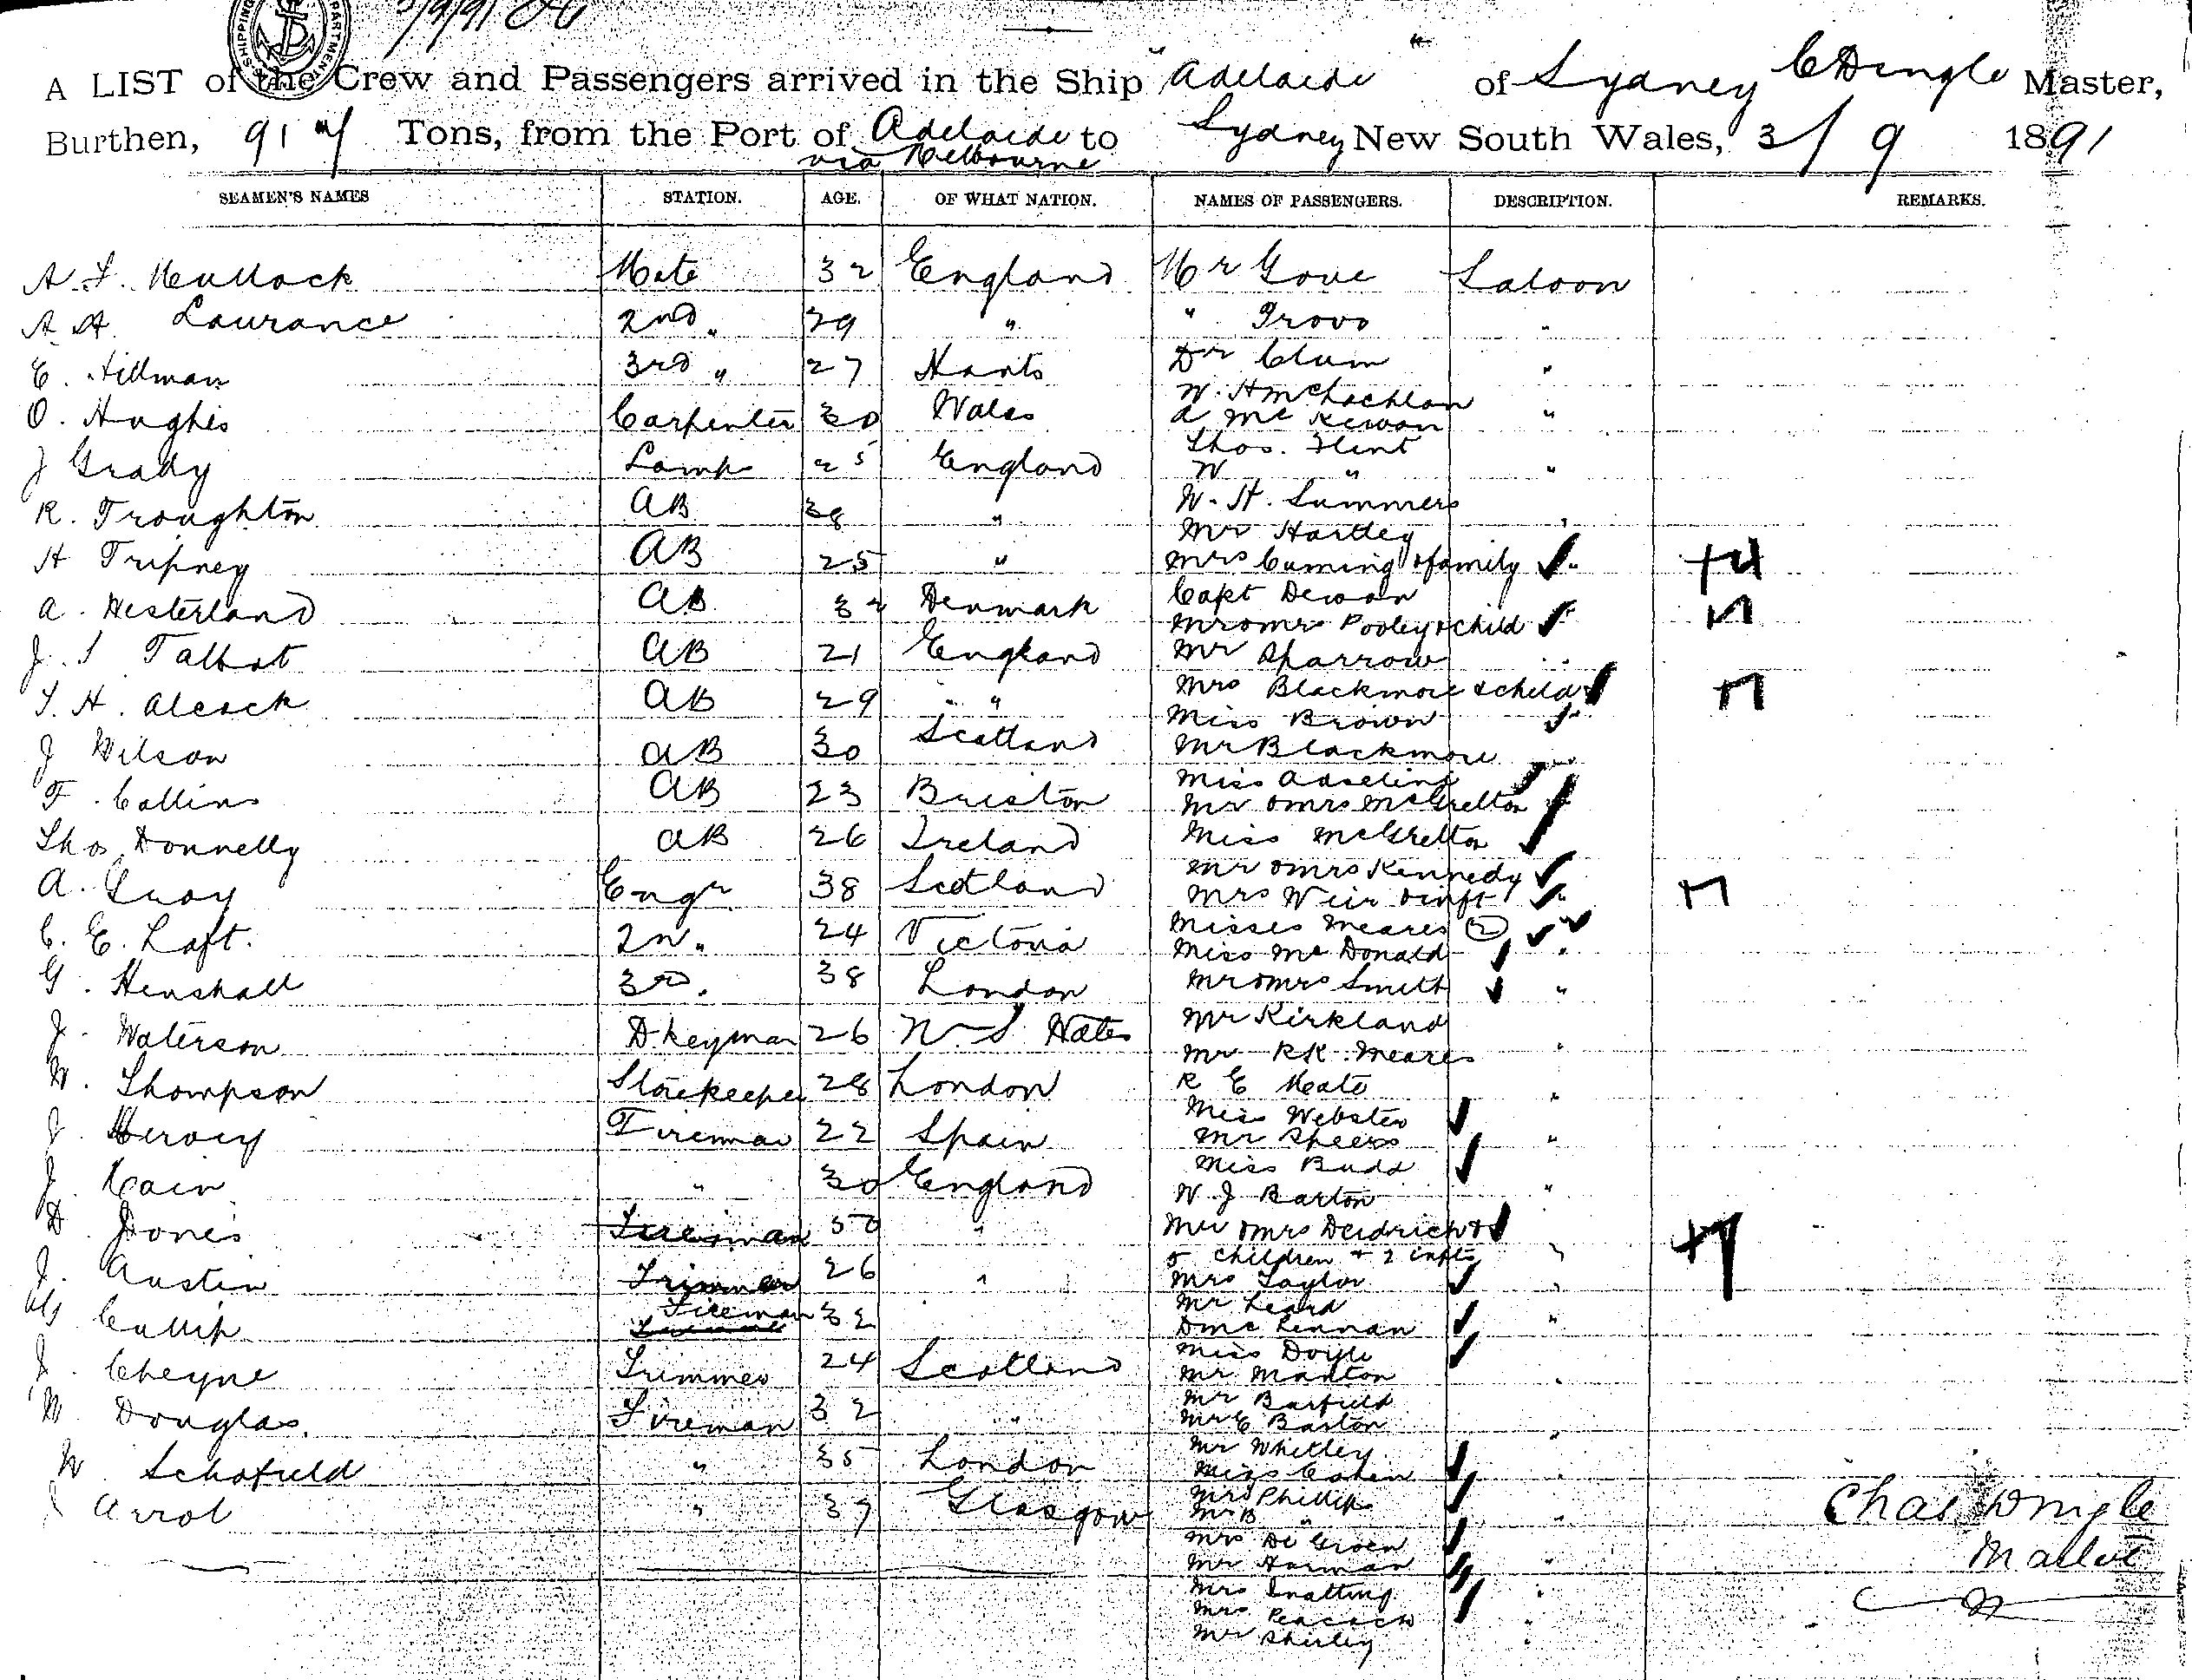 3/9/91
SHIPPING DEPARTMENT
A LIST of the Crew and Passengers arrived in the Ship "Adelaide" of Sydney C Dingle Master,
Burthen, 917 Tons, from the Port of Adelaide to Sydney New South Wales, 3/9 1891
via Melbourne
SEAMEN'S NAMES STATION. AGE. OF WHAT NATION. NAMES OF PASSENGERS. DESCRIPTION. REMARKS.
A. L. Mullock Mate 32 England Mr Gove Saloon
A A Laurance 2nd " 29 " " Provo "
E. Hillman 3rd " 27 Hants Dr Clum "
W. H McLachlan
O. Hughes Carpenter 30 Wales A McKewan "
Thos. Flint
J Grady Lamp 25 England W " "
R. Troughton AB 38 " W. H. Summers
Mr Hartley "
H Tripney AB 25 " Mrs Cuming & family "
A. Westerland AB 32 Denmark Capt Dewar
Mr & Mrs Pooley & child "
J. S Talbot AB 21 England Mr Sparrow "
T. H. Alcock AB 29 " Mrs Blackmore & child
Miss Brown "
J Wilson AB 30 Scotland Mr Blackmore "
F. Collins AB 23 Briston Miss Adseling
Mr & Mrs McGretton "
Thos Donnelly AB 26 Ireland Miss McGretton
A. Quoy Engr 38 Scotland Mr & Mrs Kennedy
Mrs Weir & inft "
C. E. Laft. 2n " 24 Victoria Misses Meares 2 "
Miss McDonald "
G. Henshall 3rd. 38 London Mr & Mrs Smith "
J. Waterson Dkeyman 26 N. S. Wales Mr Kirkland
Mr R K. Meares "
W. Thompson Storekeeper 28 London R E Keats "
Miss Webster
J. Hervey Fireman 22 Spain Mr Speers "
Miss Budd
J. Cain " 30 England W J Barton "
D Jones Fireman 50 " Mr & Mrs Deidrich &
5 children & 2 infts "
J. Austin Trimmer 26 " Mrs Taylor "
Mr Leard
Wm Cullip Fireman 32 D McLennan "
Miss Doyle
J. Cheyne Trimmer 24 Scotland Mr Manton "
Mr Barfield
W. Douglas. Fireman 32 " Mr E Barton "
Mr Whitley
W. Schofield " 35 London Miss Cohen "
Mrs Phillips
J Arrol " 37 Glasgow Mr B " "
Mrs De Groen
Mr Harman "
Mrs Snalting "
Mrs Peacock "
Mr Shirley "
Chas Dingle
Master